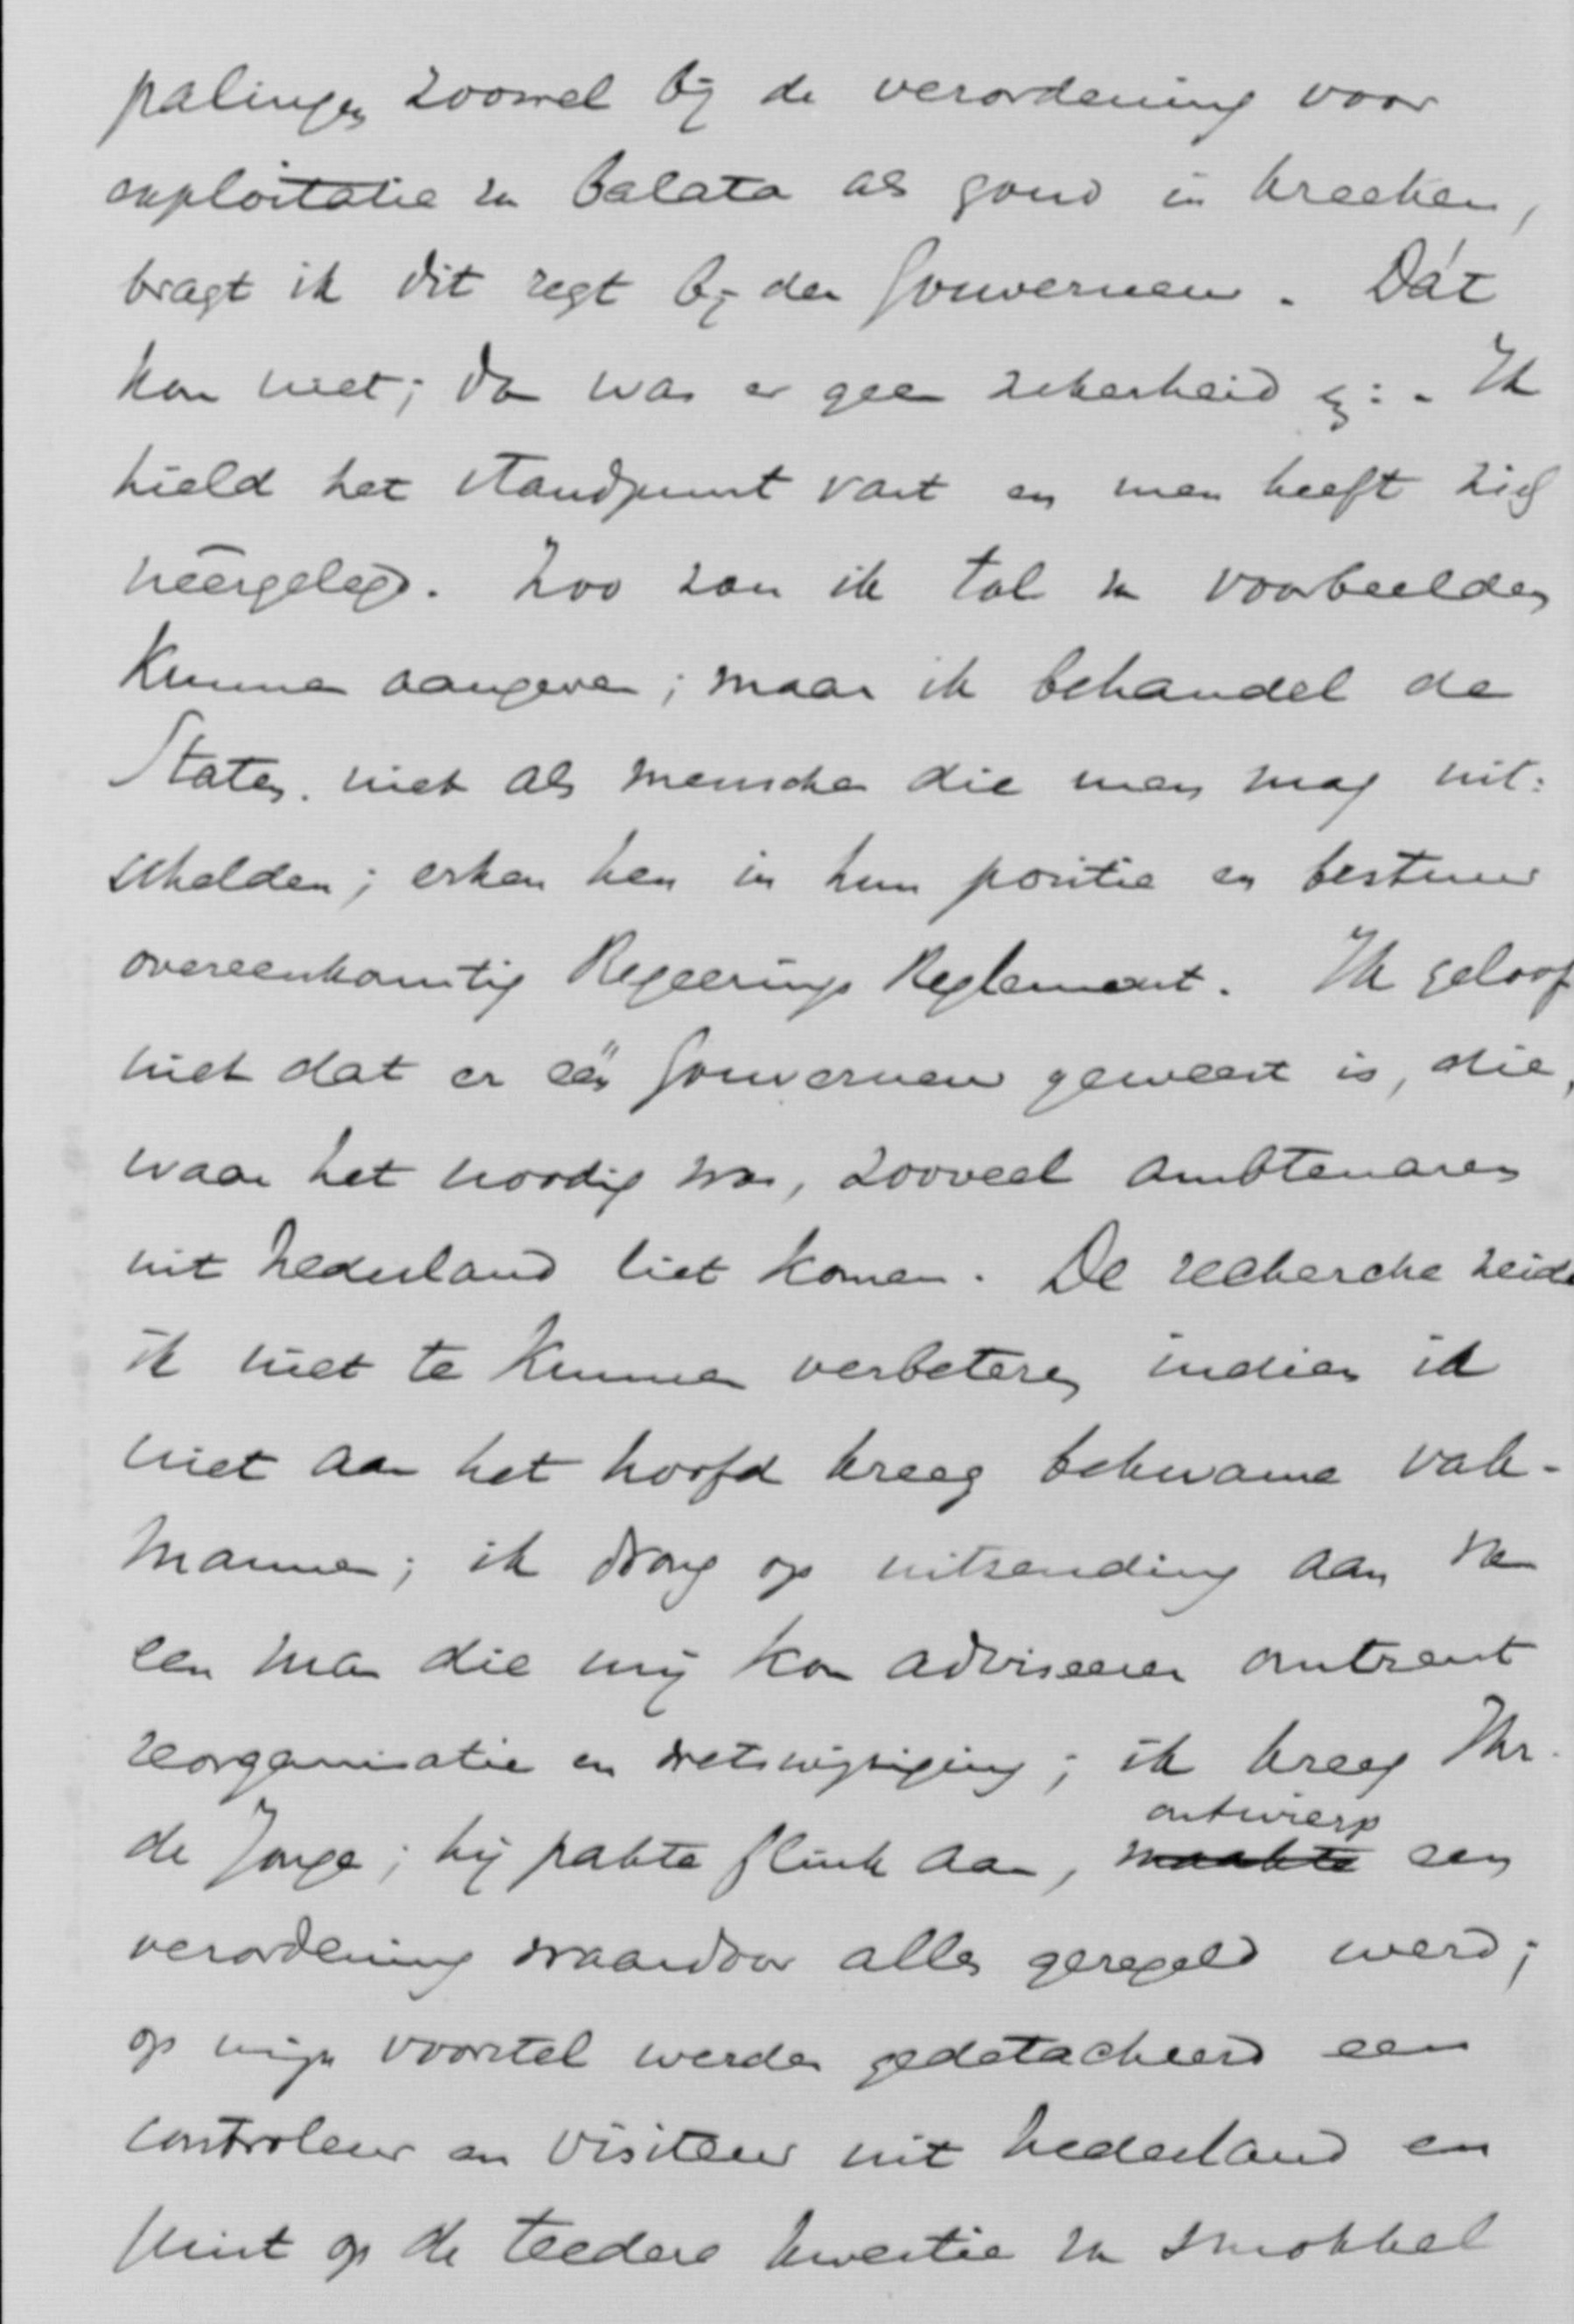 palingen zoowel bij de verordening voor
exploitatie van balata als goud in kreeken,
bragt ik dit regt bij den Gouverneur. Dát
kon niet; dan was er geen zekerheid enz:. Ik
hield het standpunt vast en men heeft zich
neêrgelegd. Zoo zou ik tal van voorbeelden
kunnen aangeven; maar ik behandel de
Staten niet als menschen die men mag uit:
schelden; erken hen in hun positie en bestuur
overeenkomstig Regeerings Reglement. Ik geloof
niet dat er één Gouverneur geweest is, die,
waar het noodig was, zooveel ambtenaren
uit Nederland liet komen. De recherche zeide
ik niet te kunnen verbeteren indien ik
niet aan het hoofd kreeg bekwame vak-
mannen; ik drong op uitzending aan van
een man die mij kon adviseeren omtrent
reorganisatie en wetswijziging; ik kreeg Mr.
de Jonge; hij pakte flink aan, ontwierp een
verordening waardoor alles geregeld werd;
op mijn voorstel werden gedetacheerd een
controleur en visiteur uit Nederland en
juist op de teedere kwestie van smokkel